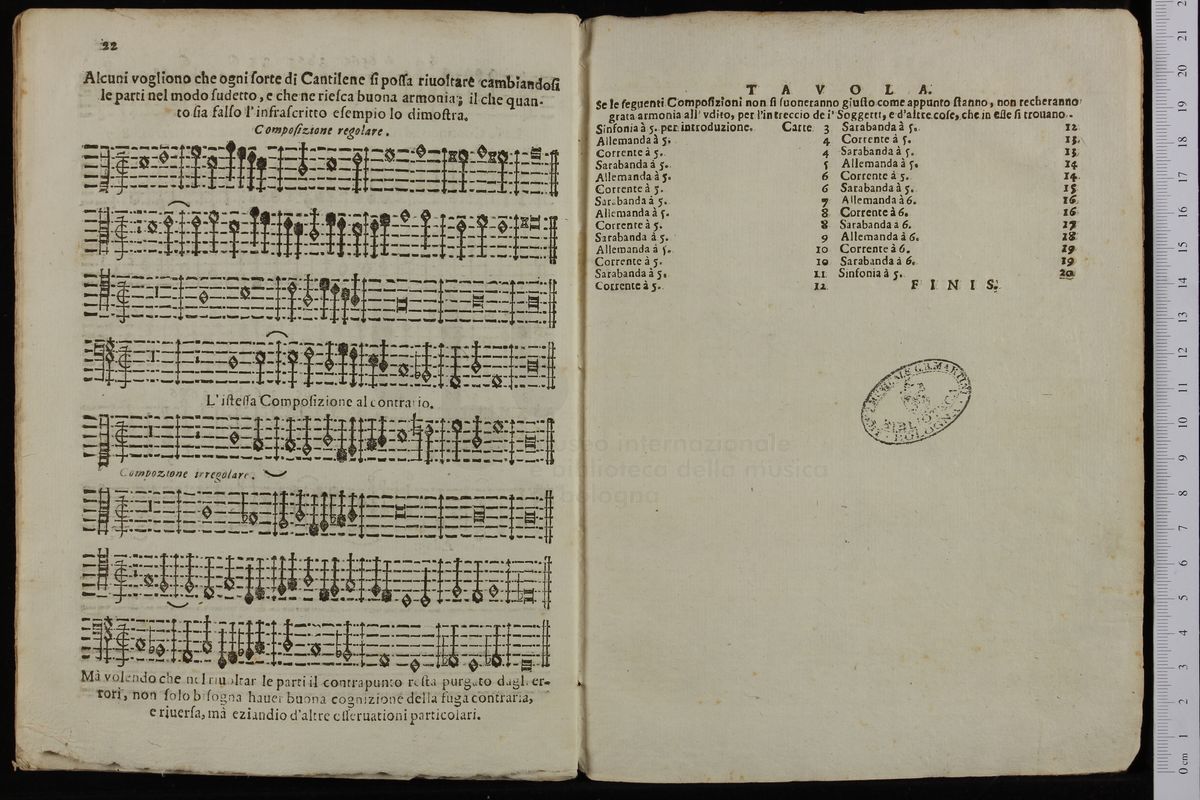 22
Alcuni vogliono che ogni ſorte di Cantilene ſi poſſa riuoltare cambiandoſi
le parti nel modo ſudetto, e che ne rieſca buona armonia; il che quan-
to ſia falſo l'infraſcritto eſempio lo dimoſtra.
Compoſizione regolare.
L'iſteſſa Compoſizione al contrario.
Compozione irregolare.
Mà volendo che nel riuoltar le parti il contrapunto reſta purgato dagl'er-
rori, non ſolo biſogna hauer buona cognizione della fuga contraria,
e riuerſa, mà eziandio d'altre oſſeruationi particolari.
T A V O L A.
Se le ſeguenti Compoſizioni non ſi ſuoneranno giuſto come appunto ſtanno, non recheranno
grata armonia all'vdito, per l'intreccio de i' Soggetti, e d'altre coſe, che in eſſe ſi trouano.
Sinfonia à 5. per introduzione. Carte 3
Allemanda à 5. 4
Corrente à 5. 4
Sarabanda à 5. 5
Allemanda à 5. 6
Corrente à 5. 6
Sarabanda à 5. 7
Allemanda à 5. 8
Corrente à 5. 8
Sarabanda à 5. 9
Allemanda à 5. 10
Corrente à 5. 10
Sarabanda à 5. 11
Corrente à 5. 12
Sarabanda à 5. 12
Corrente à 5. 13
Sarabanda à 5. 13
Allemanda à 5. 14
Corrente à 5. 14
Sarabanda à 5. 15
Allemanda à 6. 16
Corrente à 6. 16
Sarabanda à 6. 17
Allemanda à 6. 18
Corrente à 6. 19
Sarabanda à 6. 19
Sinfonia à 5. 20
F I N I S.
BIBLIOTECA
BOLOGNA
museo internazionale
biblioteca della musica
bologna
0 cm 1 2 3 4 5 6 7 8 9 10 11 12 13 14 15 16 17 18 19 20 21